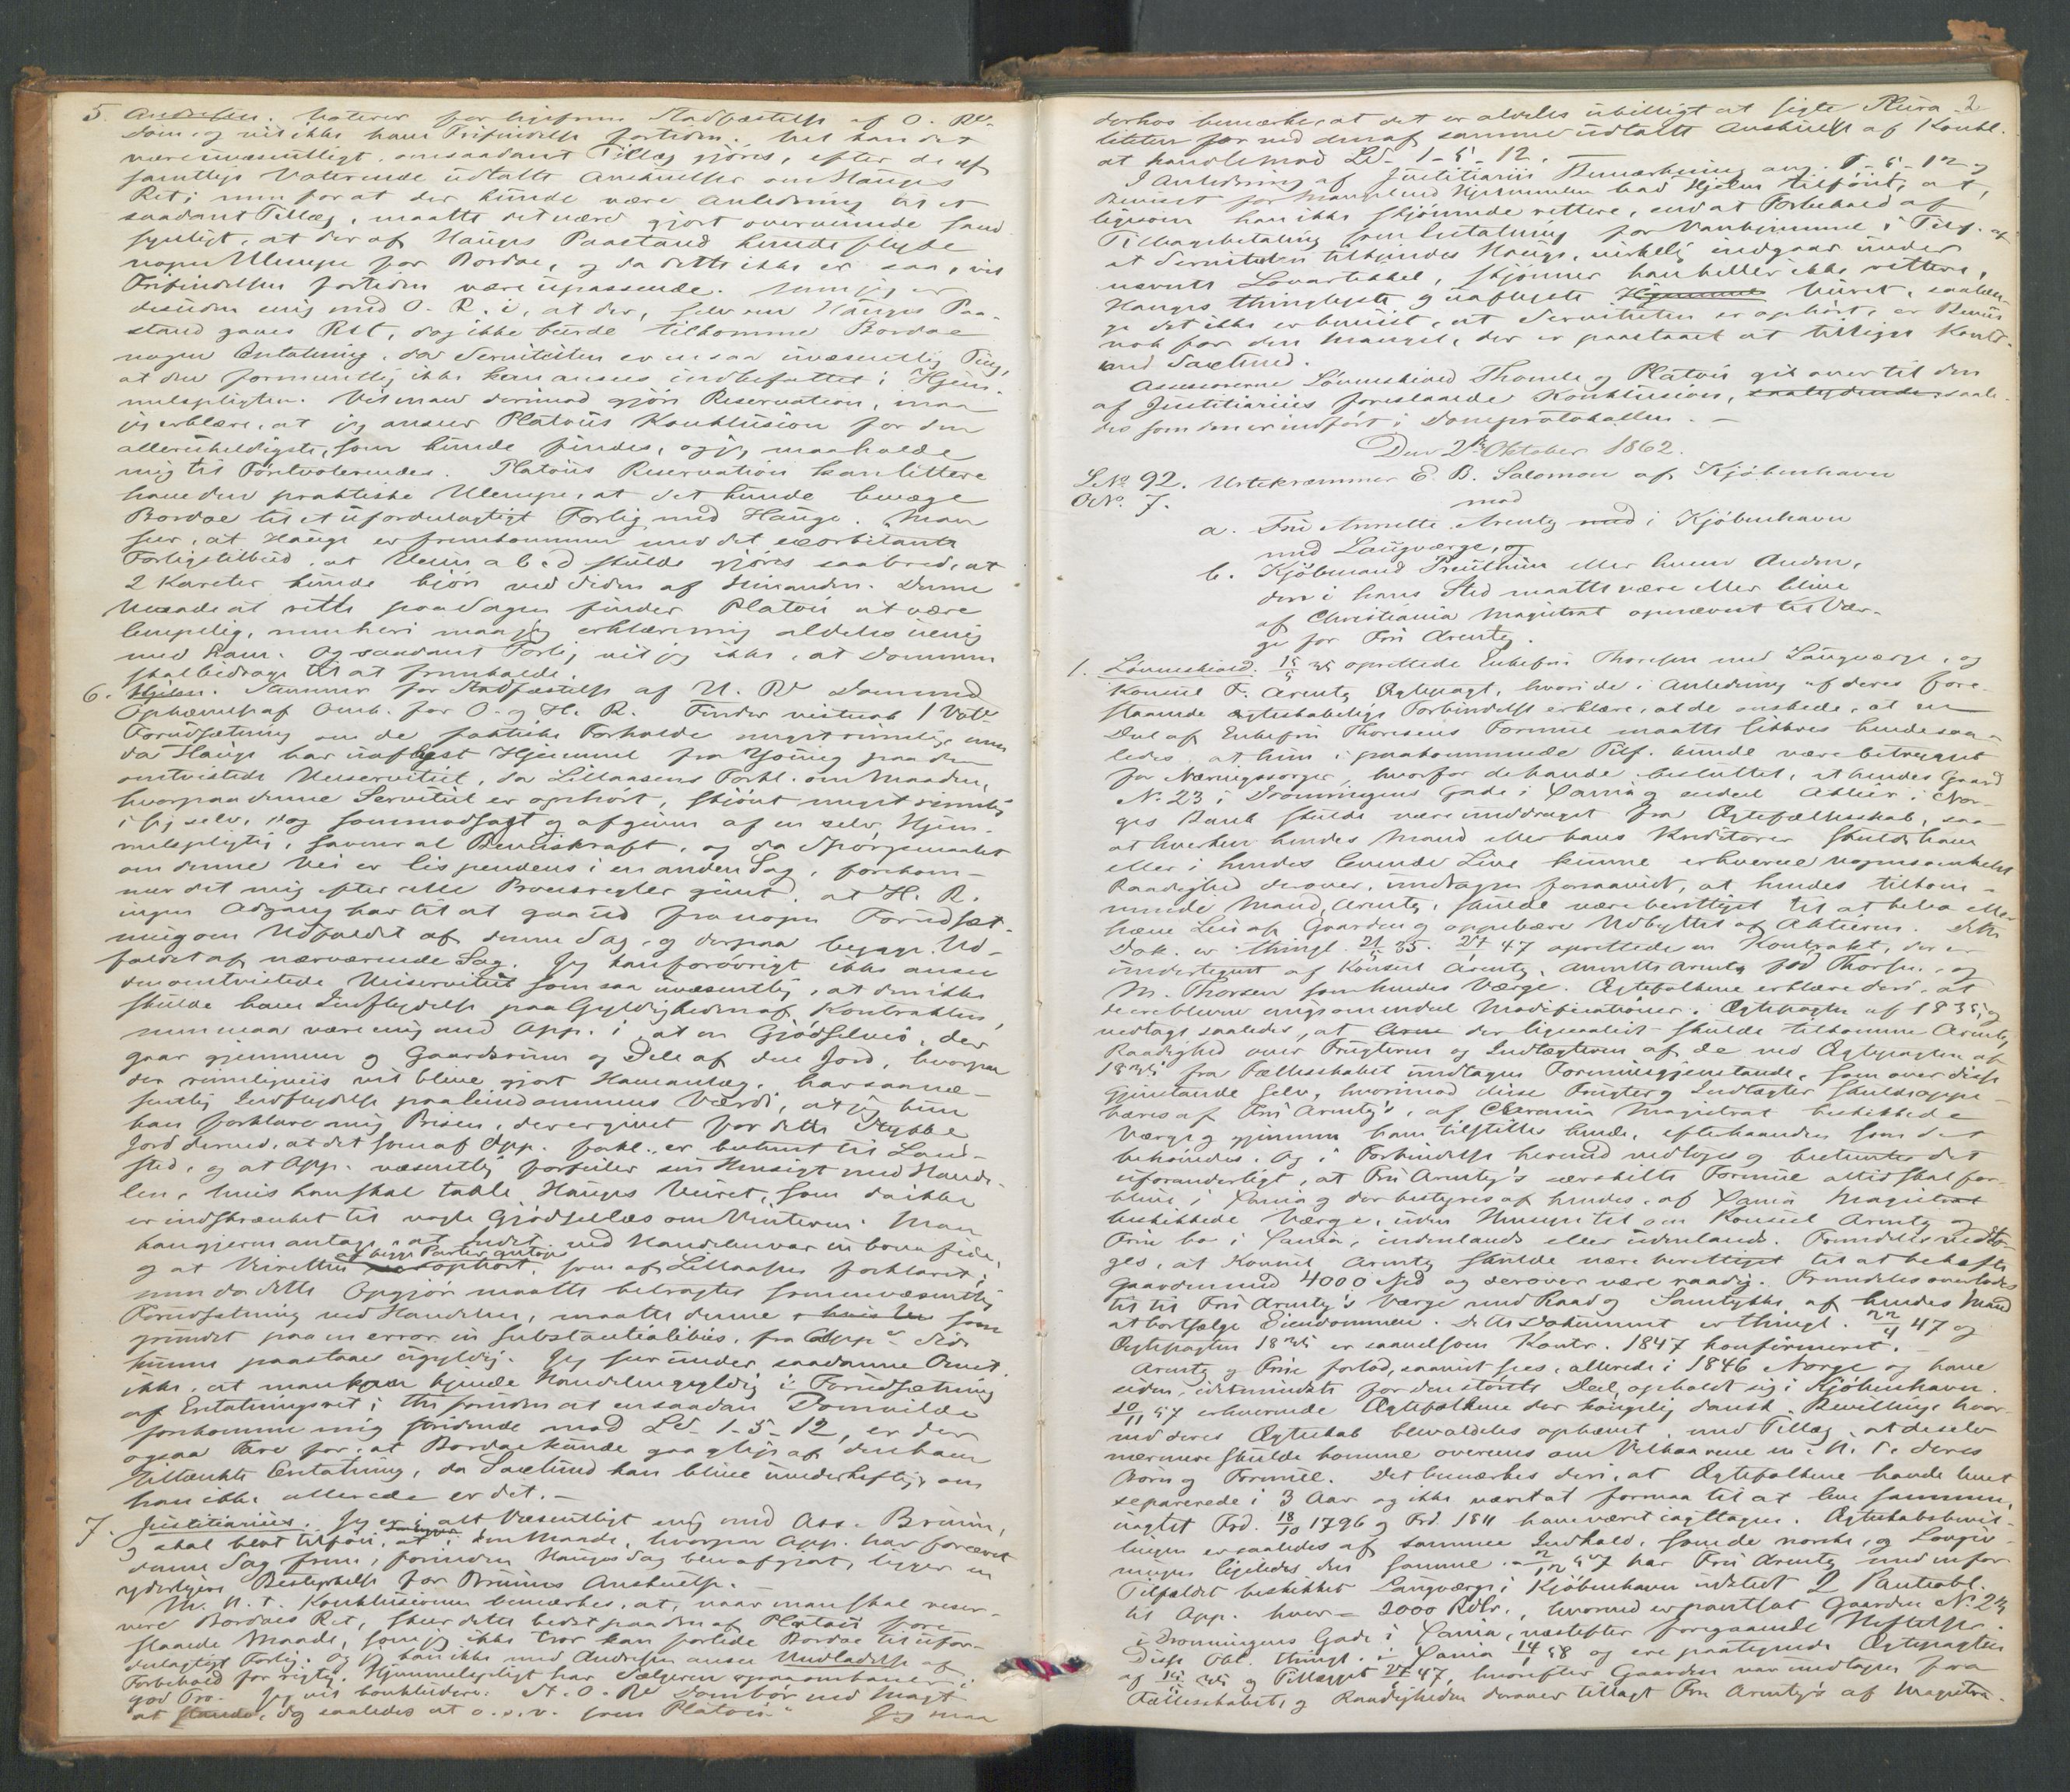 5. Andresen. Voterer for ligefrem Stadfæstelse af O. Rs
Dom og vil ikke have Frifindelse fortiden. Vel kan det
være uvæsentligt, om saadant Tillæg gjøres, efter de af
samtlige Voterende udtalte Anskuelser om Hauges
Ret; men for at der kunde være Anledning til et
saadant Tillæg, maatte det være gjort overveiende sand
synligt, at der af Hauges Paastand kunde flyde
nogen Ulempe for Bordoe, og da dette ikke er saa, vil
Frifindelsen fortiden være upassende. Som jeg er
desuden enig med O. R. i, at der, selv om Hauges Paa-
stand gaves Ret, dog ikke burde tilkomme Bordoe
nogen Erstatning, da Servituten er en saa uvæsentlig Ting,
at den formentlig ikke kan ansees indbefattet i Hjem-
melspligten. Vil man derimod gjøre Reservation, maa
jeg erklære, at jeg anseer Platous Konklusion for den
alleruheldigste, som kunde findes, og jeg maa holde
mig til Førstvoterendes. Platous Reservation kan lettere
have den praktiske Ulempe, at det kunde bevæge
Bordoe til et ufordelagtigt Forlig med Hauge. Man
seer, at Hauge er fremkommen med det exorbitante
Forligstilbud, at Veien a b c d skulde gjøres saa bred, at
2 Kareter kunde kjøre ved Siden af hinanden. Denne
Maade at rette paa Sagen finder Platou at være
lempelig, men heri maa jeg erklære mig aldeles uenig
med ham. Og saadant Forlig vil jeg ikke, at Dommen
skal bidrage til at fremkalde.
6. Hjelm. Stemmer for Stadfæstelse af U. Rs Dom med
Ophævelse af Omk. for O. og H. R. Finder vistnok 1 Vots
Forudsætning om de faktiske Forholde meget rimelig, men
da Hauge har uaflyst Hjemmel fra Young paa den
omtvistede Veiservitut, da Lillaasens Forkl. om Maaden,
hvorpaa denne Servitut er ophørt, skjønt meget rimelig
i sig selv, dog sammodsagt og afgiven af en selv Hjem-
melspligtig, savner al Beviiskraft, og da Spørgsmaalet
om denne Vei er lis pendens i en anden Sag, forekom-
mer det mig efter alle Procesregler givet, at H. R.
ingen Adgang har til at gaa ud fra nogen Forudsæt-
ning om Udfaldet af denne Sag, og derpaa bygge Ud-
faldet af nærværende Sag. Jeg kan forøvrigt ikke ansee
den omtvistede Veiservitut som saa uvæsentlig, at den ikke
skulde have Indflydelse paa Gyldigheden af Kontrakten,
men maa være enig med App. i, at en Gjødselvei, der
gaar gjennem og Gaardsrum og Dele af den Jord, hvorpaa
der rimeligviis vil blive gjort Haveanlæg, har saa væ-
sentlig Indflydelse paa Eiendommens Værdi, at jeg kun
kan forklare mig Prisen, der er givet for dette Stykke
Jord derved, at det som af App. forkl. er bestemt til Land-
sted, og at App. væsentlig forfeiler sin Hensigt med Hande-
len, hvis han skal taale Hauges Veiret, som da ikke
er indskrænket til nogle Gjødsellæs om Vinteren. Man
kan gjerne antage, at Indst. ved Handelen var in bona fide,
og at Veiretten at begge Parter antoges ophørt, som af Lillaasen forklaret;
men da dette Opgjør maatte betragtes som en væsentlig
Forudsætning ved Handelen, maatte denne som
grundet paa en error in substantialibus, fra App.s Side
kunne paastaaes ugyldig. Jeg seer under saadanne Omst.
ikke, at man kan kjende Handelen gyldig i Forudsætning
af Erstatningsret; thi foruden at en saadan Dom vilde
forekomme mig stridende mod Ld- 1-5-12, er der
ogsaa Fare for, at Bordoe kunde gaa glip af den ham
tiltænkte Erstatning, da Saxlund kan blive insolvent, om
han ikke allerede er det.-
7. Justitiarius. Jeg er i alt Væsentligt enig med Ass. Bruun,
og skal blot tilføie, at i den Maade, hvorpaa App. har forcevet
denne Sag frem, forinden Hauges Sag blev afgjort, ligger en
yderligere Bestyrkelse for Bruuns Anskuelse.
M. H. t. Konklusionen bemærkes, at, naar man skal reser-
vere Bordoes Ret, skeer dette bedst paa den af Platou fore-
slaaede Maade, som jeg ikke troer kan forlede Bordoe til ufor-
delagtigt Forlig. Og jeg kan ikke med Andresen ansee Undladelse af
Forbehold for rigtig. Hjemmelspligt har Sælgeren ogsaa om han er i
god Tro. Jeg vil konkludere: St. O. Rs Dom bør ved Magt
at stande, dog saaledes at o. s. v. som Platou. Jeg maa
2
derhos bemærke, at det er aldeles ubilligt at sigte Plura-
liteten for ved den af samme udtalte Anskuelse af Kontr.
at handle mod Ld- 1-5-12.
I Anledning af Justitiarii Bemærkning ang. 1-5-12 og
Beviset for Mangel ved Hjemmelen bad Hjelm tilført, at,
ligesom han ikke skjønnede rettere, end at Forbehold af
Tilbagebetaling som Erstatning for Vanhjemmel i Tilf. af
at Servituten tilkjendes Hauge, virkelig indgaar under
nævnte Lovartikkel, skjønner han heller ikke rettere,
Hauges thinglyste og uaflyste Veiret, saalæn-
ge det ikke er beviist, at Servituten er ophørt, er Beviis
nok for den Mangel, der er paastaaet at tillægge Kontr.
med Saxlund.
Assessorerne Lövenskiold Thomle og Platou gik over til den
af Justitiarius foreslaaede Konklusion, saale-
des som den er indført i Domsprotokollen. -
Den 2de Oktober 1862.
L.No 92. Urtekræmmer E. B. Salomon af Kjöbenhavn
O.No 7.
mod
a. Fru Annette Arentz i Kjöbenhavn
med Laugværge, og
b. Kjöbmand Preuthun eller hvem Anden,
der i hans Sted maatte være eller blive
af Christiania Magistrat opnævnt til Vær-
ge for Fru Arentz.
1. Lövenskiold. 15/5 35 oprettede Enkefru Thoresen med Laugværge, og
Konsul F. Arentz Ægtepagt, hvori de i Anledning af deres fore-
staaende ægteskabelige Forbindelse erklære, at de ønskede, at en
Deel af Enkefru Thoresens Formue maatte sikkres hende saa-
ledes, at hun i paakommende Tilf. kunde være betrygget
for Næringssorger, hvorfor de havde besluttet, at hendes Gaard
No 23 i Dronningens Gade i Xania og endeel Aktier i Nor-
ges Bank skulde være unddraget fra Ægtefællesskab, saa
at hverken hendes Mand eller hans Kreditorer skulde have
eller i hendes levende Live kunne erhverve nogensomhelst
Raadighed derover, undtagen forsaavidt, at hendes tilkom-
mende Mand, Arentz, skulde være berettiget til at beboe eller
hæve Leie af Gaarden og oppebære Udbyttet af Aktierne. Dette
Dok. er thingl. 21/5 35. 27/1 47 oprettedes en Kontrakt, der er
undertegnet af Konsul Arentz, Annette Arentz född Thorsen, og
M. Thorsen som hendes Værge. Ægtefolkene erklære deri, at
de ere blevne enige om endeel Modifikationer i Ægtepagten af 1835, og
vedtage saaledes, at der ligesaalidt skulde tilkomme Arentz
Raadighed over Frugterne og Indtægterne af de ved Ægtepagten af
1835 fra Fællesskabet undtagne Formuesgjenstande, som over disse
Gjenstande selv, hvorimod disse Frugter og Indtægter skulde oppe-
bæres af Fru Arentz's, af Chrania Magistrat beskikkede
Værge og gjennem ham tilstilles hende, efterhaanden som det
behövedes. Og i Forbindelse hermed vedtoges og bestemtes det
uforanderligt, at Fru Arentz's særskilte Formue altid skal for-
blive i Xania og der bestyres af hendes, af Xania Magistrat
beskikkede Værge, uden Hensyn til om Konsul Arentz og
Frue bo i Xania, indenlands eller udenlands. Fremdeles vedto-
ges, at Konsul Arentz skulde være berettiget til at behæfte
Gaarden med 4000 Spd og derover være raadig. Fremdeles overlodes
til Fru Arentz's Værge med Raad og Samtykke af hendes Mand
at bortsælge Eiendommen. Dette Dokument er thingl. 22/4 47 og
Ægtepagten 1835 er saavelsom Kontr. 1847 konfirmeret.
Arentz og Frue forlod, saavidt sees, allerede i 1846 Norge og have
siden, idetmindste for den største Deel, opholdt sig i Kjöbenhavn.
10/11 57 erhvervede Ægtefolkene der kongelig dansk Bevilling, hvor-
ved deres Ægteskab blev aldeles ophævet, med Tillæg, at de selv
nærmere skulde komme overeens om Vilkaarene m. H. t. deres
Børn og Formue. Det bemærkes deri, at Ægtefolkene havde levet
separerede i 3 Aar og ikke været at formaa til at leve sammen,
uagtet Frd. 18/10 1796 og Frd. 1811 have været iagttagne. Ægteskabsbevil-
lingen er saaledes af samme Indhold, som de norske, og Lovgiv-
ningen ligeledes den samme. 2/12 57 har Fru Arentz med en for
Tilfældet beskikket Laugværge i Kjöbenhavn udstedt 2 Panteobl.
til App. hver = 2000 Rdlr., hvorved er pantsat Gaarden No 23
i Dronningens Gade i Xania, næstefter foregaaende Heftelser.
Disse Obl. thingl. i Xania 14/1 58 og ere paategnede Ægtepagten
af 15/5 35 og Tillægget 27/1 47, hvorefter Gaarden var undtagen fra
Fællesskabet, og Raadigheden derover tillagt Fru Arentz's af Magistra-